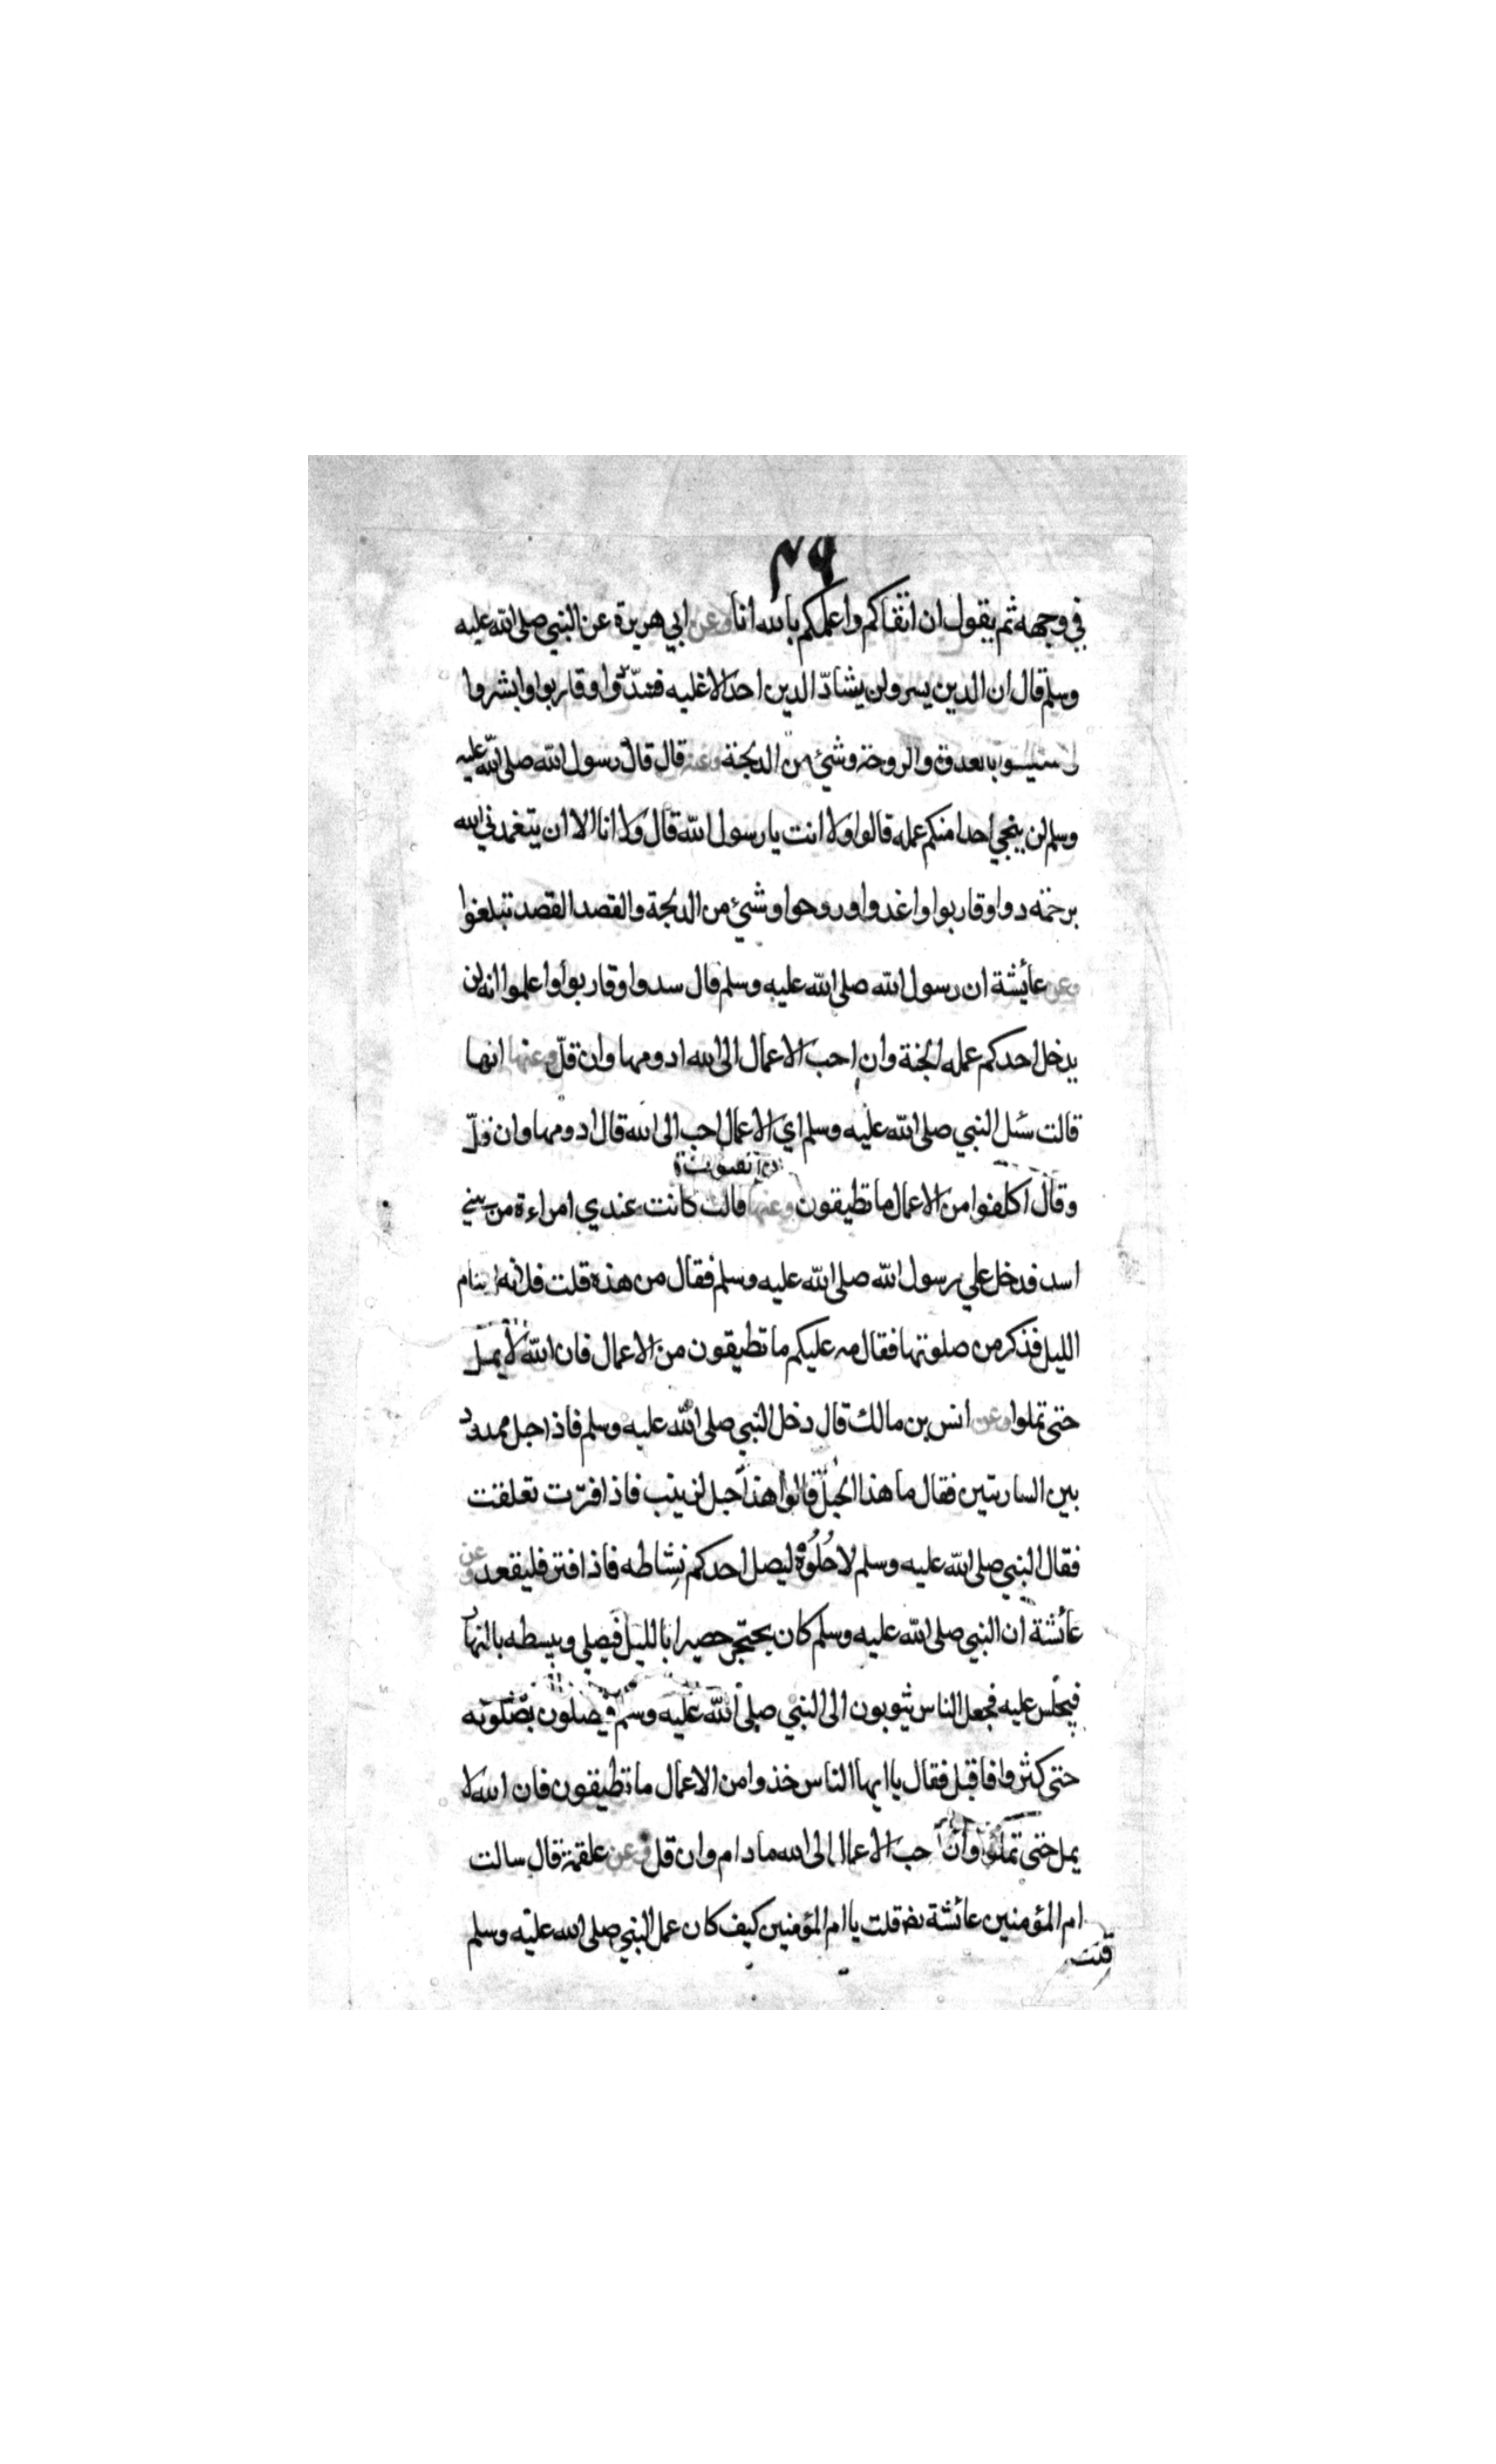 ٤٩
في وجهه ثم يقول ان اتقاكم واعلمكم بالله انا وعن ابي هريرة عن النبي صلى الله عليه
وسلم قال ان الدين يسر ولن يشادّ الدين احد الا غلبه فسدّدوا وقاربوا وابشروا
بالغدوة والروحة وشئ من الدلجة وعنه قال قال رسول الله صلى الله عليه
وسلم لن ينجي احدا منكم عمله قالوا ولا انت يا رسول الله قال ولا انا الا ان يتغمدني الله
برحمته دوا وقاربوا واغدوا وروحوا وشئ من الدلجة والقصد القصد تبلغوا
وعن عائشة ان رسول الله صلى الله عليه وسلم قال سددوا وقاربوا واعلموا انه لن
يدخل احدكم عمله الجنة وان احب الاعمال الى الله ادومها وان قلّ وعنها انها
قالت سئل النبي صلى الله عليه وسلم اي الاعمال احب الى الله قال ادومها وان قلّ
وقال اكلفوا من الاعمال ما تطيقون وعنها قالت كانت عندي امراءة من بني
اسد فدخل علي رسول الله صلى الله عليه وسلم فقال من هذه قلت فلانة لا تنام
الليل فذكر من صلوتها فقال مه عليكم ما تطيقون من الاعمال فان الله لا يمل
حتى تملوا وعن انس بن مالك قال دخل النبي صلى الله عليه وسلم فاذا حبل ممدود
بين الساريتين فقال ما هذا الحبل قالوا هذا حبل لزينب فاذا فترت تعلقت
فقال النبي صلى الله عليه وسلم لا حُلُّوه ليصل احدكم نشاطه فاذا افتر فليقعد وعن
عائشة ان النبي صلى الله عليه وسلم كان يحتجر حصيرا بالليل فيصلي ويبسطه بالنهار
فيجلس عليه فجعل الناس يثوبون الى النبي صلى الله عليه وسلم فيصلون بصلوته
حتى كثروا فاقبل فقال يا ايها الناس خذوا من الاعمال ما تطيقون فان الله لا
يمل حتى تملوا وان احب الاعمال الى الله ما دام وان قل وعن علقمة قال سالت
ام المؤمنين عائشة رضـ قلت يا ام المؤمنين كيف كان عمل النبي صلى الله عليه وسلم
قلت